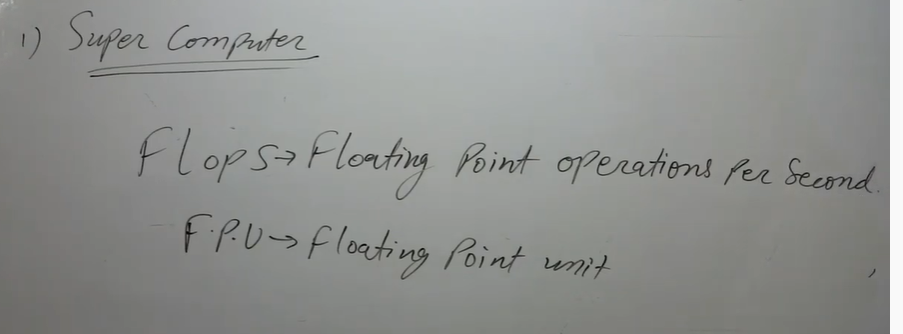 1) Super Computer
Flops→ Floating Point operations Per Second.
F.P.U→ Floating Point unit